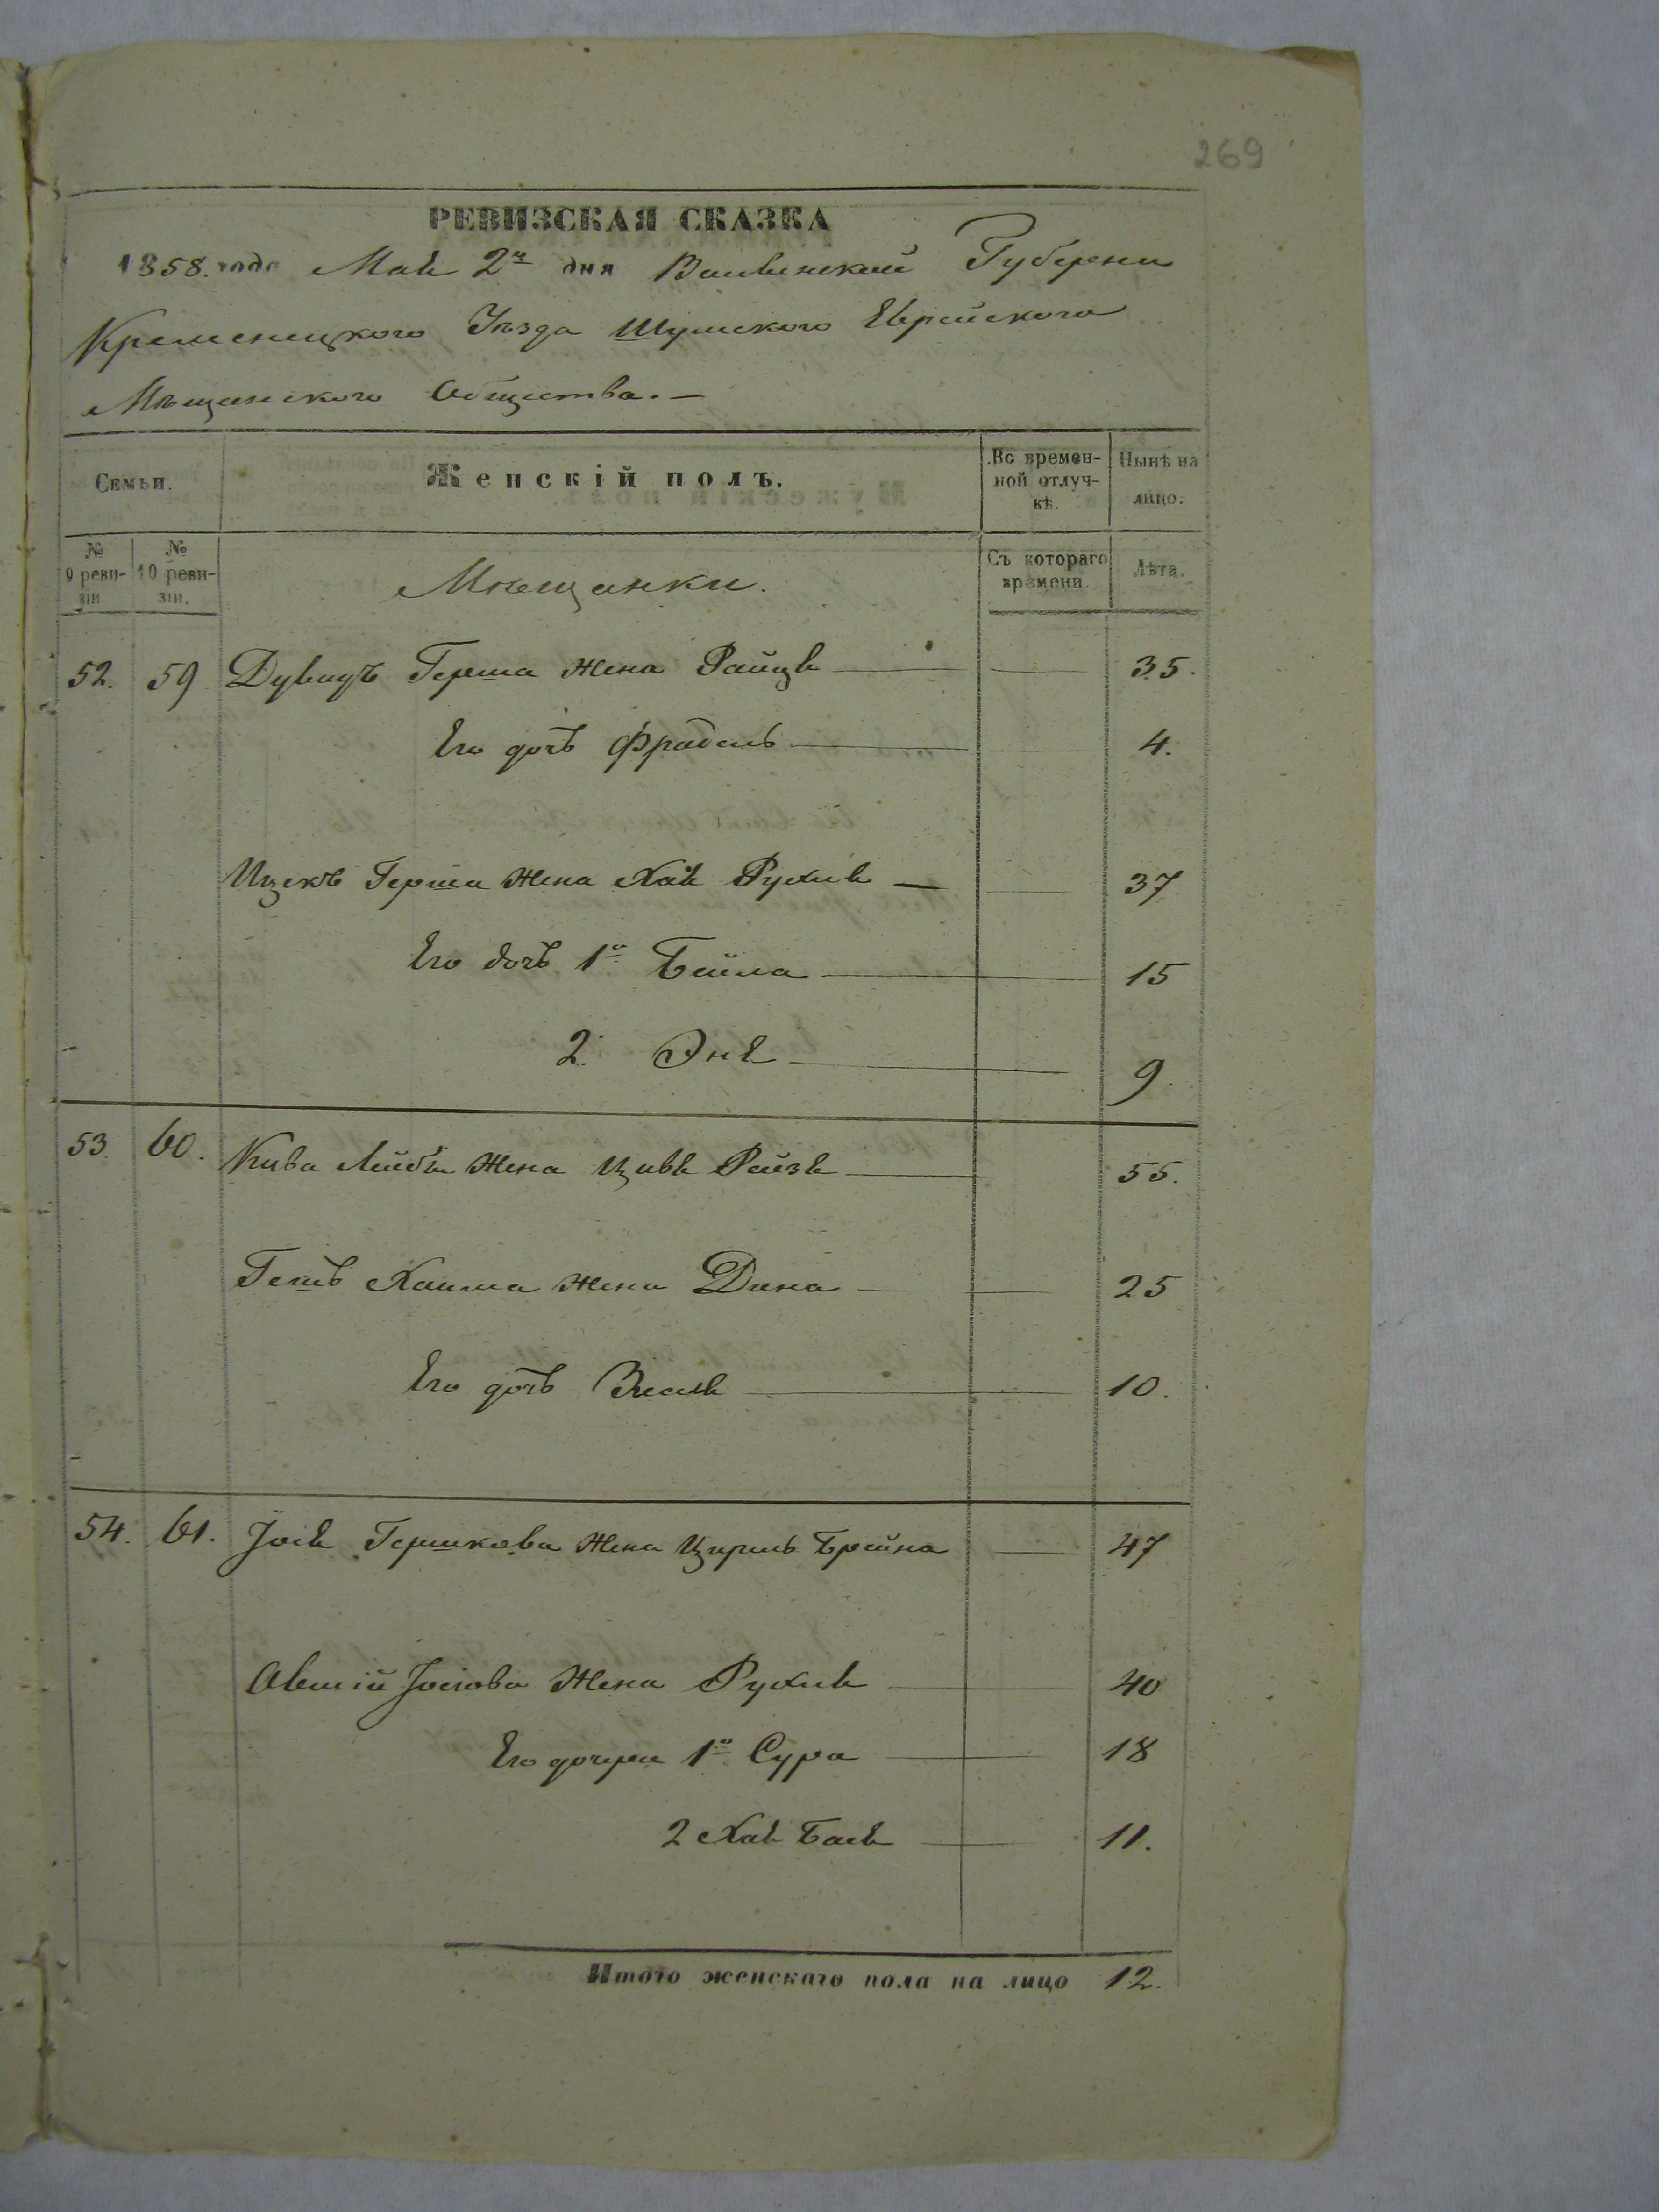 269
РЕВИЗСКАЯ СКАЗКА
1858. года Мая 2го дня Волынской Губернии
Кременецкого Уѣзда Шумского Еврейского
Мѣщанского Общества. —
Семьи. Женскій полъ. Во времен-ной отлуч-кѣ. Нынѣ на лицо.
№ 9 реви-зіи № 10 реви-зіи. Мѣщанки. Съ котораго времени. Лѣта.
52. 59 Дувидъ Герша жена Райця — — 35.
Его дочь Фрадель — — 4.
Ицекъ Герша жена Хая Рухля — — 37
Его дочь 1я Бейла — 15
2. Эня — 9.
53. 60. Кива Лейбы жена Цивя Рейзя — 55.
Хаима жена Дина — — 25
Его дочь — 10.
54. 61. Іося Гершкова жена Цирль Брейна — 47
Овшій Іосіова жена Рухля — 40
Его дочери 1я Сура — 18
2 Хая Бася — 11.
Итого женскаго пола на лицо 12.